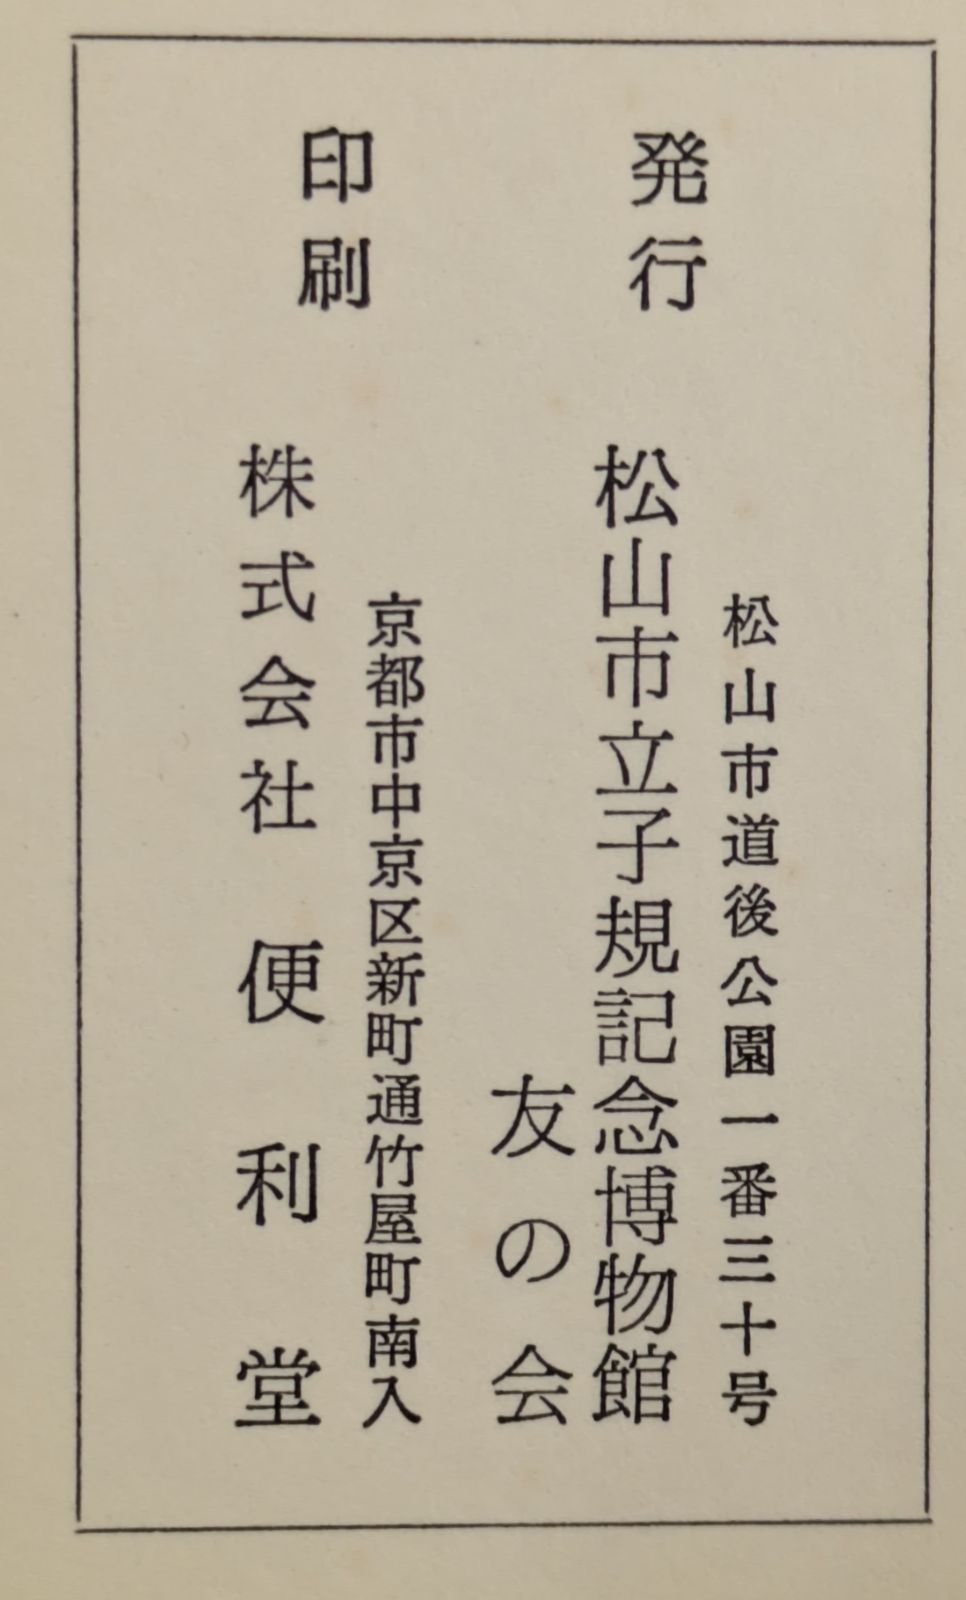 発行
松山市道後公園一番三十号
松山市立子規記念博物館
友の会
印刷
京都市中京区新町通竹屋町南入
株式会社 便利堂